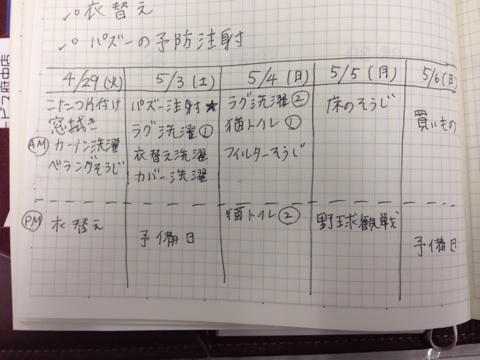 衣替え
パズーの予防注射
4/29(火) 5/3(土) 5/4(日) 5/5(月) 5/6(日)
AM
こたつ片付け
窓拭き
カーテン洗濯
ベランダそうじ
パズー注射★
ラグ洗濯①
衣替え洗濯
カバー洗濯
ラグ洗濯②
猫トイレ①
フィルターそうじ
床のそうじ
買いもの
PM
衣替え
予備日
猫トイレ②
野球観戦
予備日